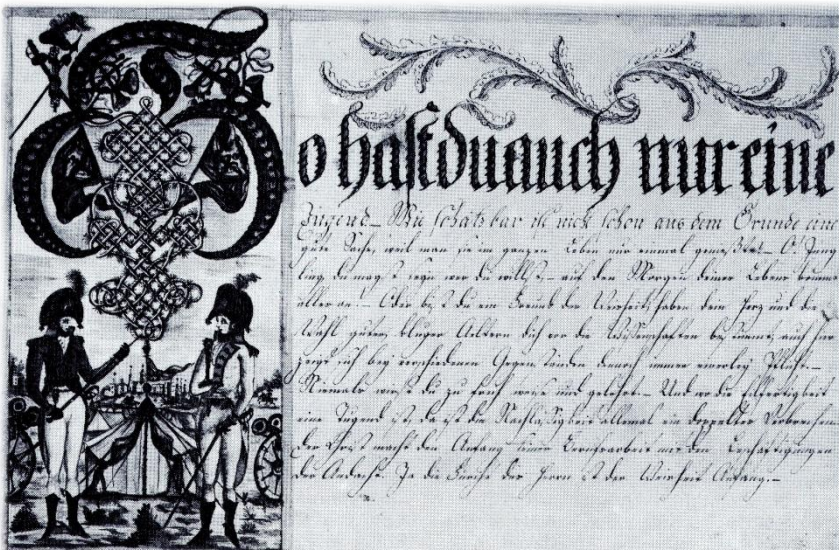 So hast du auch nur eine
Jugend_ Wie schätzbar ist nicht schon aus dem Grunde eine
gute Sache, weil man sie im ganzen Leben nur einmal genießt!_ O! Jüng
ling, du magst seyn wer du willst,_ auf den Morgen deines Lebens kommt
alles an!_ Oder bist du ein Freund der Weisheit, haben dein Herz und die
Wahl guter, kluger Aeltern dich vor die Wissenschaften bestimmt, auch hier
zeigt sich bey verschiedenen Gegenständen dennoch immer einerley Pflicht._
Niemals wirst du zu früh weise und gelehrt._ Und wo die Eilfertigkeit
eine Tugend ist, da ist die Nachläßigkeit allemal ein doppeltes Verbrechen
Der Christ macht den Anfang seiner Berufsarbeit mit den Beschäftigungen
der Andacht. Ja die Furcht des Herrn ist der Weisheit Anfang._